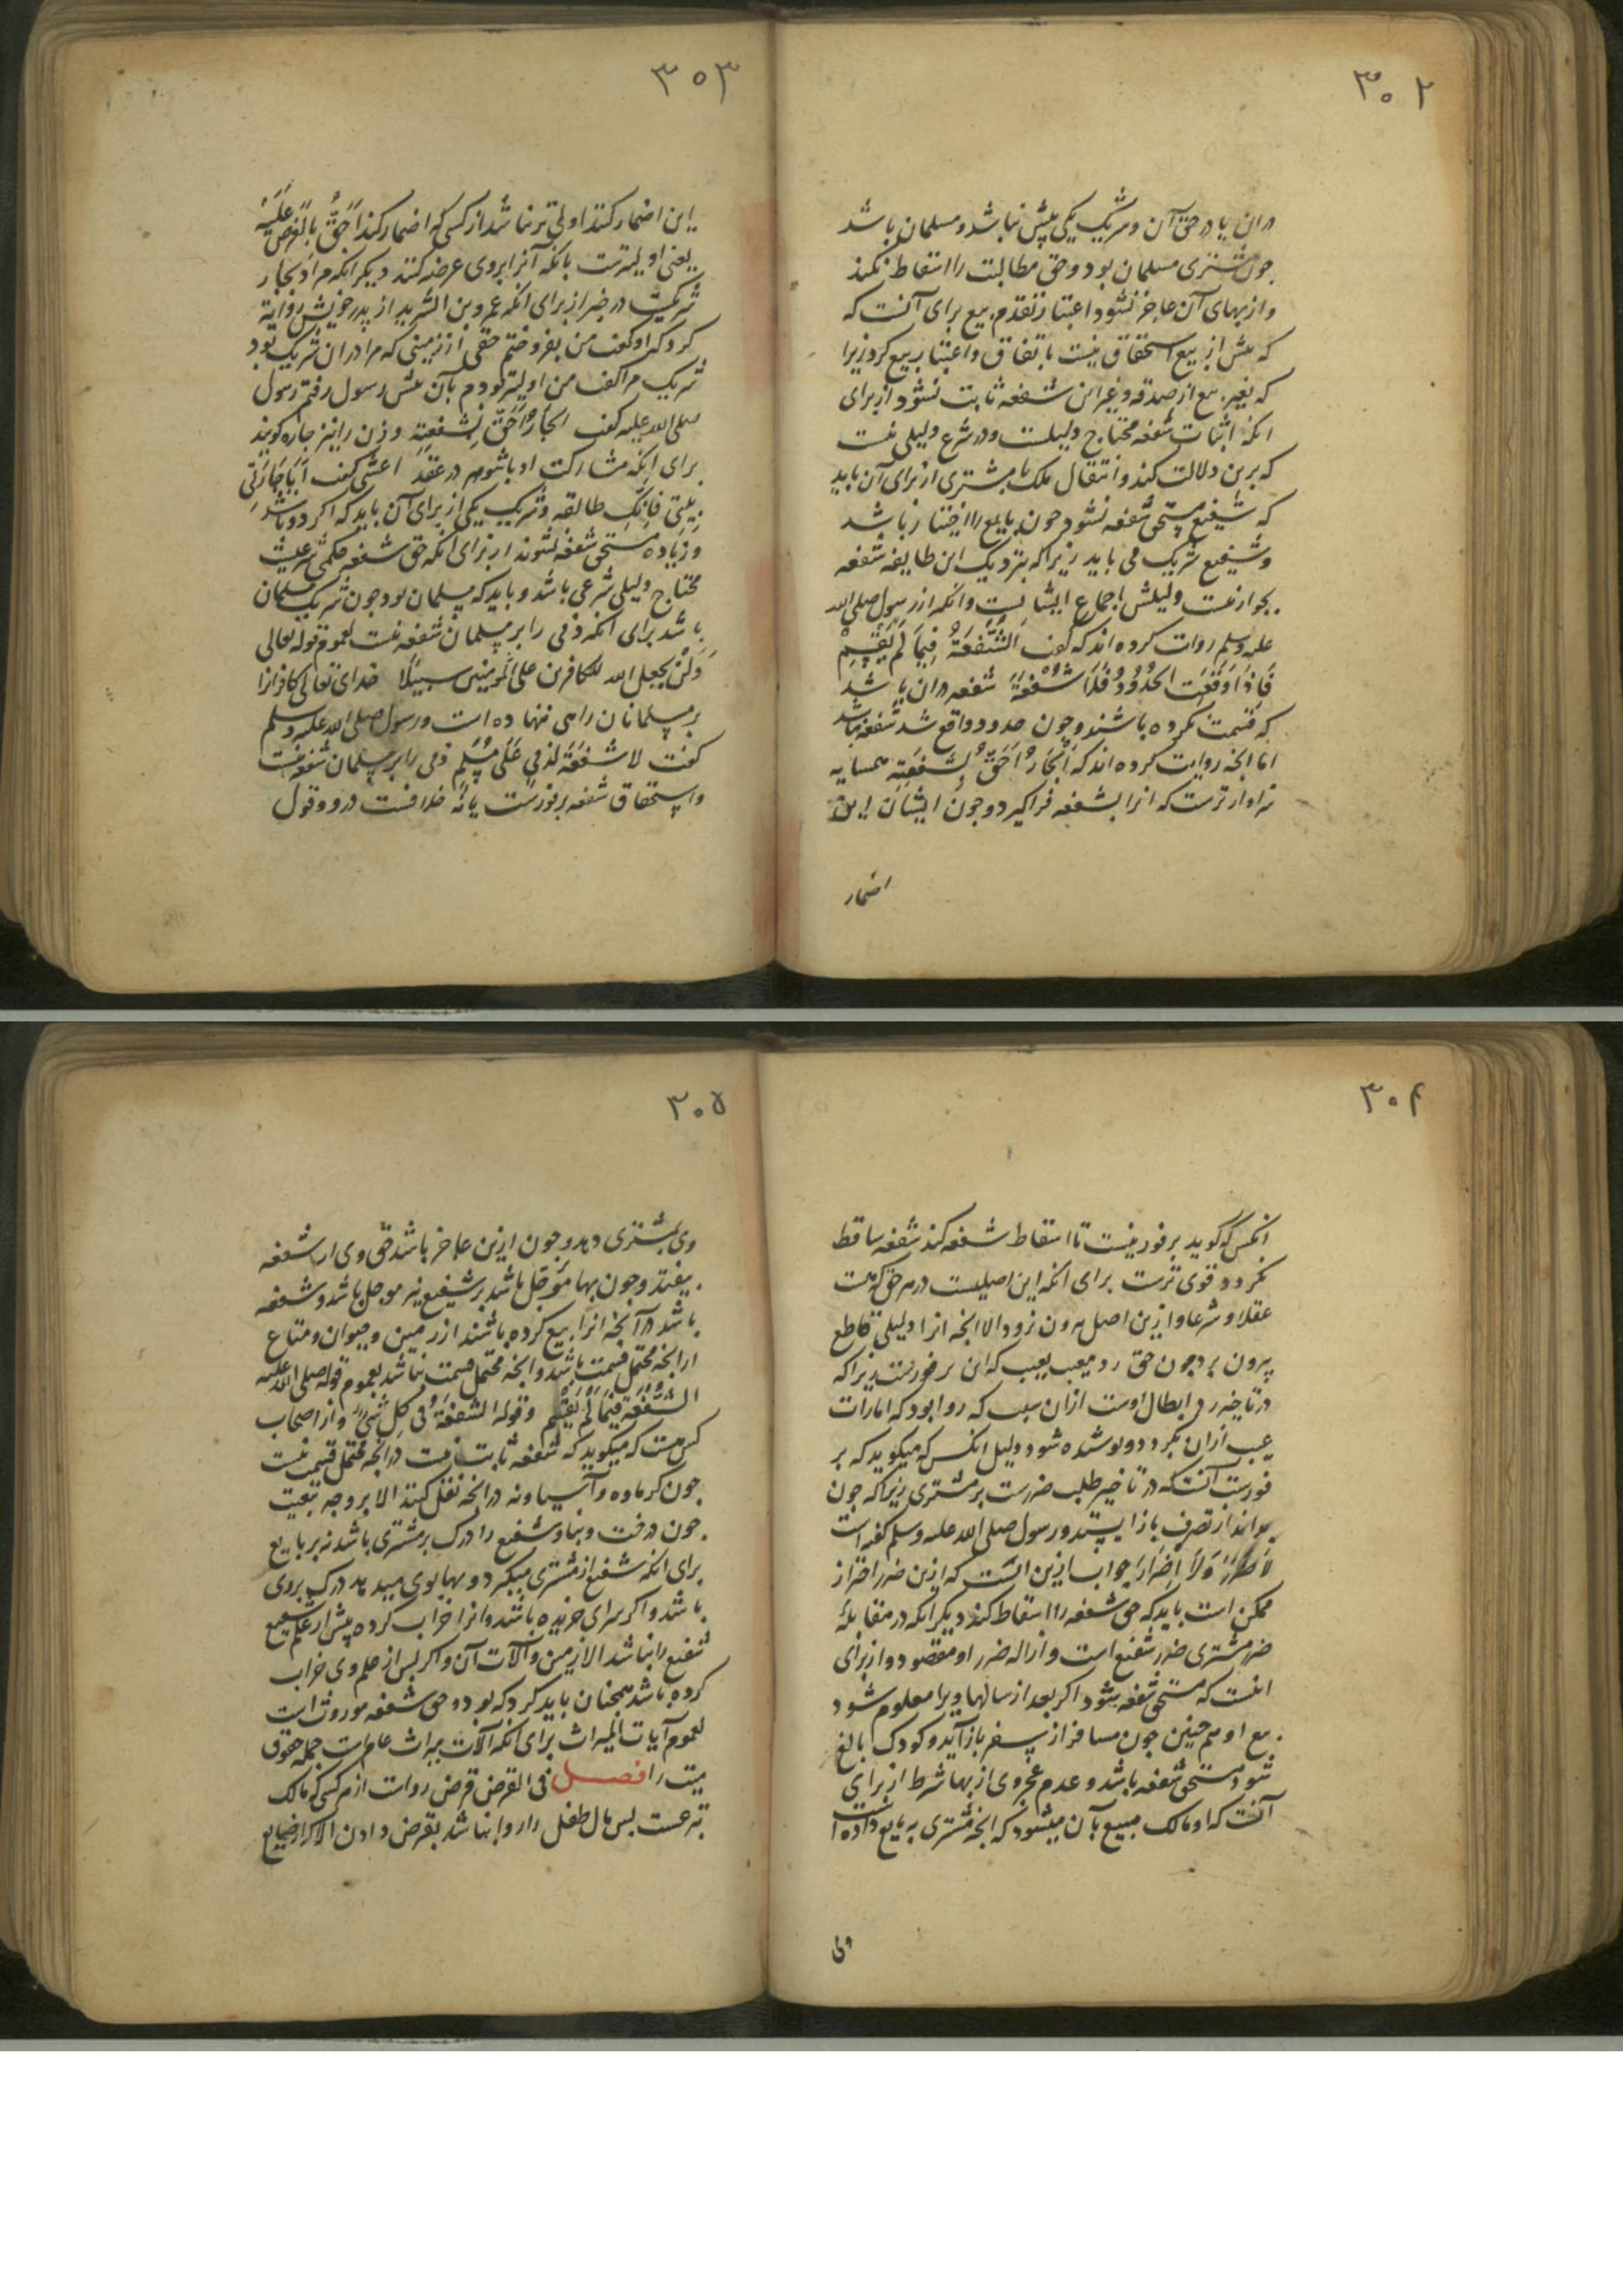 ۳۰۲
دران یا در حق آن و شریک یکی بیش نباشد و مسلمان باشد
چون مشتری مسلمان بود و حق مطالبت را اسقاط نکند
و از بهای آن عاجز نشود اعتبار تقدم بیع برای آنست که
که پیش از بیع استحقاق نیست باتفاق و اعتبار بیع کرد زیرا
که بغیر بیع از صدقه و غیر این شفعه ثابت نشود از برای
انکه اثبات شفعه محتاج دلیلست و در شرع دلیلی نیست
که برین دلالت کند و انتقال ملک با مشتری از برای آن باید
که شفیع مستحق شفعه نشود چون بایع را اختیار باشد
و شفیع شریک می باید زیرا که بنزدیک این طایفه شفعه
بجوار نیست دلیلش اجماع ایشانست و انکه از رسول صلی الله
علیه وسلم روایت کرده اند که گفت الشُّفعَةُ فِیمَا لَم یُقسَم
فَاِذَا وَقَعَت الحُدُودُ فَلَا شُفعَةَ شفعه دران باشد
که قسمت نکرده باشند و چون حدود واقع شد شفعه نباشد
اما انچه روایت کرده اند که اَلجَارُ اَحَقُّ بِشُفعَتِهِ همسایه
سزاوارترست که انرا بشفعه فراگیرد و چون ایشان این
اضمار
۳۰۳
این اضمار کنند اولی تر نباشد از کسی که اضمار کند اَحَقُّ بِالعَرضِ عَلَیهِ
یعنی اولیترست بانکه آنرا بروی عرضه کنند دیگر انکه مراد بجار
شریکست در خبر از برای انکه عمرو بن الشرید از پدر خویش روایت
کرد که او گفت من بفروختم حقی از زمینی که مرا دران شریک بود
شریک مرا گفت من اولیتر بودم بآن پیش رسول رفتم رسول
صلی الله علیه گفت الجارُ اَحَقُّ بِشُفعَتِهِ و زن را نیز جاره گویند
برای انکه مشارکت او با شوهر در عقد اعشی گفت اَیَا جَارَتِی
بِینِی فَاِنَّکِ طالقه و شریک یکی از برای آن باید که اگر دو باشد
و زیاده مستحق شفعه نشوند از برای انکه حق شفعه حکمی شرعیست
محتاج دلیلی شرعی باشد و باید که مسلمان بود چون شریک مسلمان
باشد برای انکه ذمی را بر مسلمان شفعه نیست لعموم قوله تعالی
وَلَن یجعل الله للکافرین علی المومنین سبیلا خدای تعالی کافرانرا
بر مسلمانان راهی ننهاده است و رسول صلی الله علیه وسلم
گفت لا شفعَةَ لذمی عَلَی مُسلِم ذمی را بر مسلمان شفعه نیست
و استحقاق شفعه بر فورست یا نه خلافست در و دو قول
۳۰۴
انکس که گوید بر فور نیست تا اسقاط شفعه کند شفعه ساقط
نگردد قوی ترست برای انکه این اصلیست در هر حق که هست
عقلا و شرعا و ازین اصل بیرون نرود الا انچه انرا دلیلی قاطع
بیرون برد چون حق رد معیب بعیب که این بر فورست زیرا که
در تاخیر رد ابطال اوست ازان سبب که روا بود که امارات
عیب ازان بگردد و پوشیده شود و دلیل انکس که میگوید که بر
فورست آنست که در تاخیر طلب ضررست بر مشتری زیرا که چون
بداند از تصرف باز ایستد و رسول صلی الله علیه وسلم گفته است
لاَ ضَرَرَ وَلاَ اِضرَارَ جواب ازین انست که ازین ضرر احتراز
ممکن است باید که حق شفعه را اسقاط کند دیگر انکه در مقابلهٔ
ضرر مشتری ضرر شفیع است و ازاله ضرر او مقصود و از برای
انست که مستحق شفعه شود اگر بعد از سالها ویرا معلوم شود
بیع او همچنین چون مسافر از سفر باز آید و کودک بالغ
شود مستحق شفعه باشد و عدم عجز وی از بها شرط از برای
آنست که او مالک مبیع بآن میشود که انچه مشتری به بایع داده است
وی
۳۰۵
وی بمشتری دهد و چون ازین عاجز باشد حق وی از شفعه
بیفتد و چون بها مؤجل باشد بر شفیع نیز موجل باشد و شفعه
باشد در آنچه انرا بیع کرده باشند از زمین و حیوان و متاع
از انچه محتمل قسمت باشد و انچه محتمل قسمت نباشد بعموم قوله صلی الله علیه
الشُّفعَة فیمَا لَم یُقسَم و قوله الشفعَةُ فی کلّ شَیءٍ و از اصحاب
کس هست که میگوید که شفعه ثابت نیست درانچه محتمل قسمت نیست
چون گرماوه و آسیا و نه درانچه نقل کنند الا بر وجه تبعیت
چون درخت و بنا و شفیع را درک بر مشتری باشد نه بر بایع
برای انکه شفیع از مشتری میگیرد و بها بوی میدهد درک بروی
باشد و اگر سرای خریده باشد و انرا خراب کرده پیش از علم شفیع
شفیع را نباشد الا زمین و آلات آن و اگر پس از علم وی خراب
کرده باشد همچنان باید کرد که بود و حق شفعه موروث است
لعموم آیات المیراث برای انکه آلات میراث عام است جمله حقوق
میت را فصل فی القرض قرض رواست از هر کسی که مالک
تبرعست پس مال طفل را روا نباشد بقرض دادن الا که از ضایع